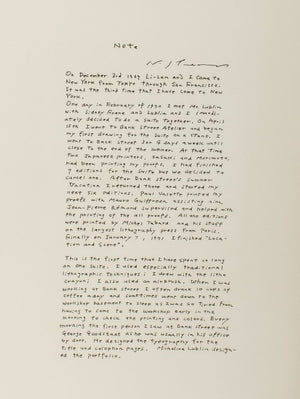 Note
On December 3rd 1969 Li-Lan and I came to
New York from Tokyo through San Francisco.
It was the third time that I have come to New
York.
One day in February of 1970 I met Mr. Lublin
with Sidney and Lublin and I immedi-
ately decided to do a suite together. On April
15th I went to Bank Street Atelier and began
my first drawing for the suite on a stone. I
went to Bank Street for 4 days a week until
close to the end of the summer. At that time
two Japanese printers, and Morimoto,
had been printing my proofs. I had finished
7 editions for the suite but we decided to
cancel one. After Bank Street's Summer
Vacation I returned there and started my
next six editions. Paul printed my
proofs with Mauro Giuffreda assisting him.
Jean-Pierre Remond supervised and helped with
the printing of the all proofs. All the editions
were printed by Michel and his study
on the largest lithography press from Paris.
Finally on January 7, 1971 I finished "Loca-
tion and Scene".
This is the first time that I have spent so long
on one suite. I used especially traditional
lithographic techniques: I drew with the litho
crayon; I also used an airbrush. When I was
working at Bank Street I often drank 10 cups of
coffee a day and sometimes went down to the
workshop basement to sleep as I was so tired from
having to come to the workshop early in the
morning to check the printing and colors. Every
morning the first person I saw at Bank Street was
George Goodstadt as he was usually in his office
by door. He designed the typography for the
title and colophon pages. Micheline Lublin design-
ed the portfolio.